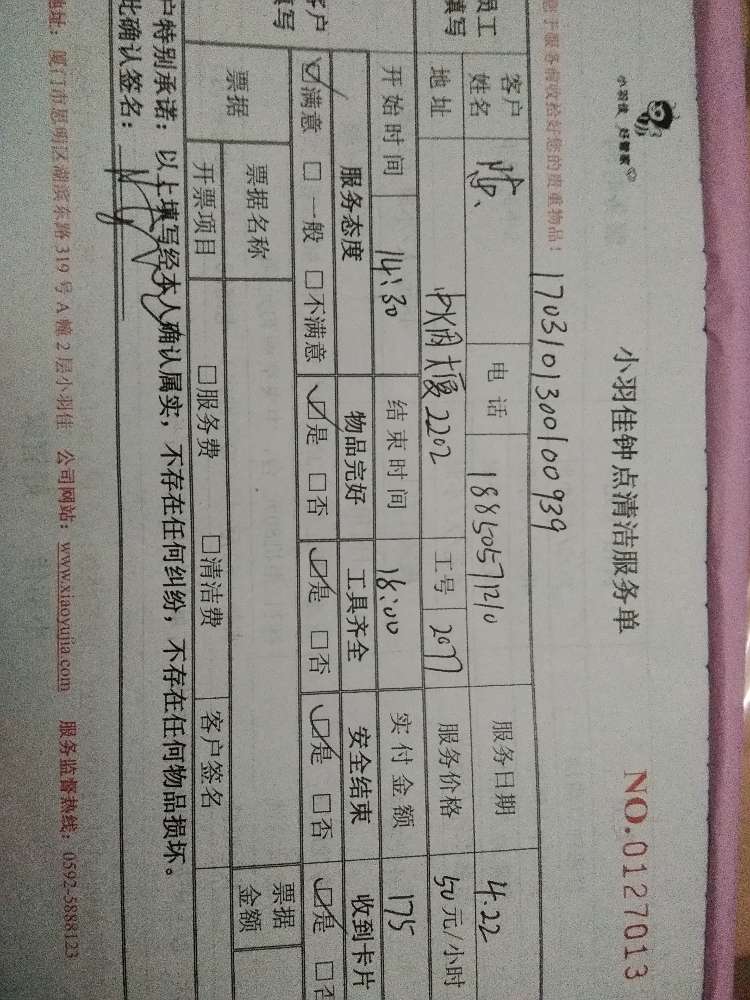 小羽佳 好管家
小羽佳钟点清洁服务单
NO.0127013
1703101300100939
于服务前收拾好您的贵重物品！
员工
填写
客户
姓名
电话 18850571210 服务日期 4.22
地址 大厦2202 工号 2077 服务价格 50元/小时
开始时间 14:30 结束时间 18:00 实付金额 175
客户
填写
服务态度 物品完好 工具齐全 安全结束 收到卡片
☑满意 □一般 □不满意 ☑是 □否 ☑是 □否 ☑是 □否 ☑是 □否
票据 票据名称 票据
金额
开票项目 □服务费 □清洁费 客户签名
户特别承诺：以上填写经本人确认属实，不存在任何纠纷，不存在任何物品损坏。
此确认签名：
地址：厦门市思明区湖滨东路319号A幢2层小羽佳 公司网站：www.xiaoyujia.com 服务监督热线：0592-5888123